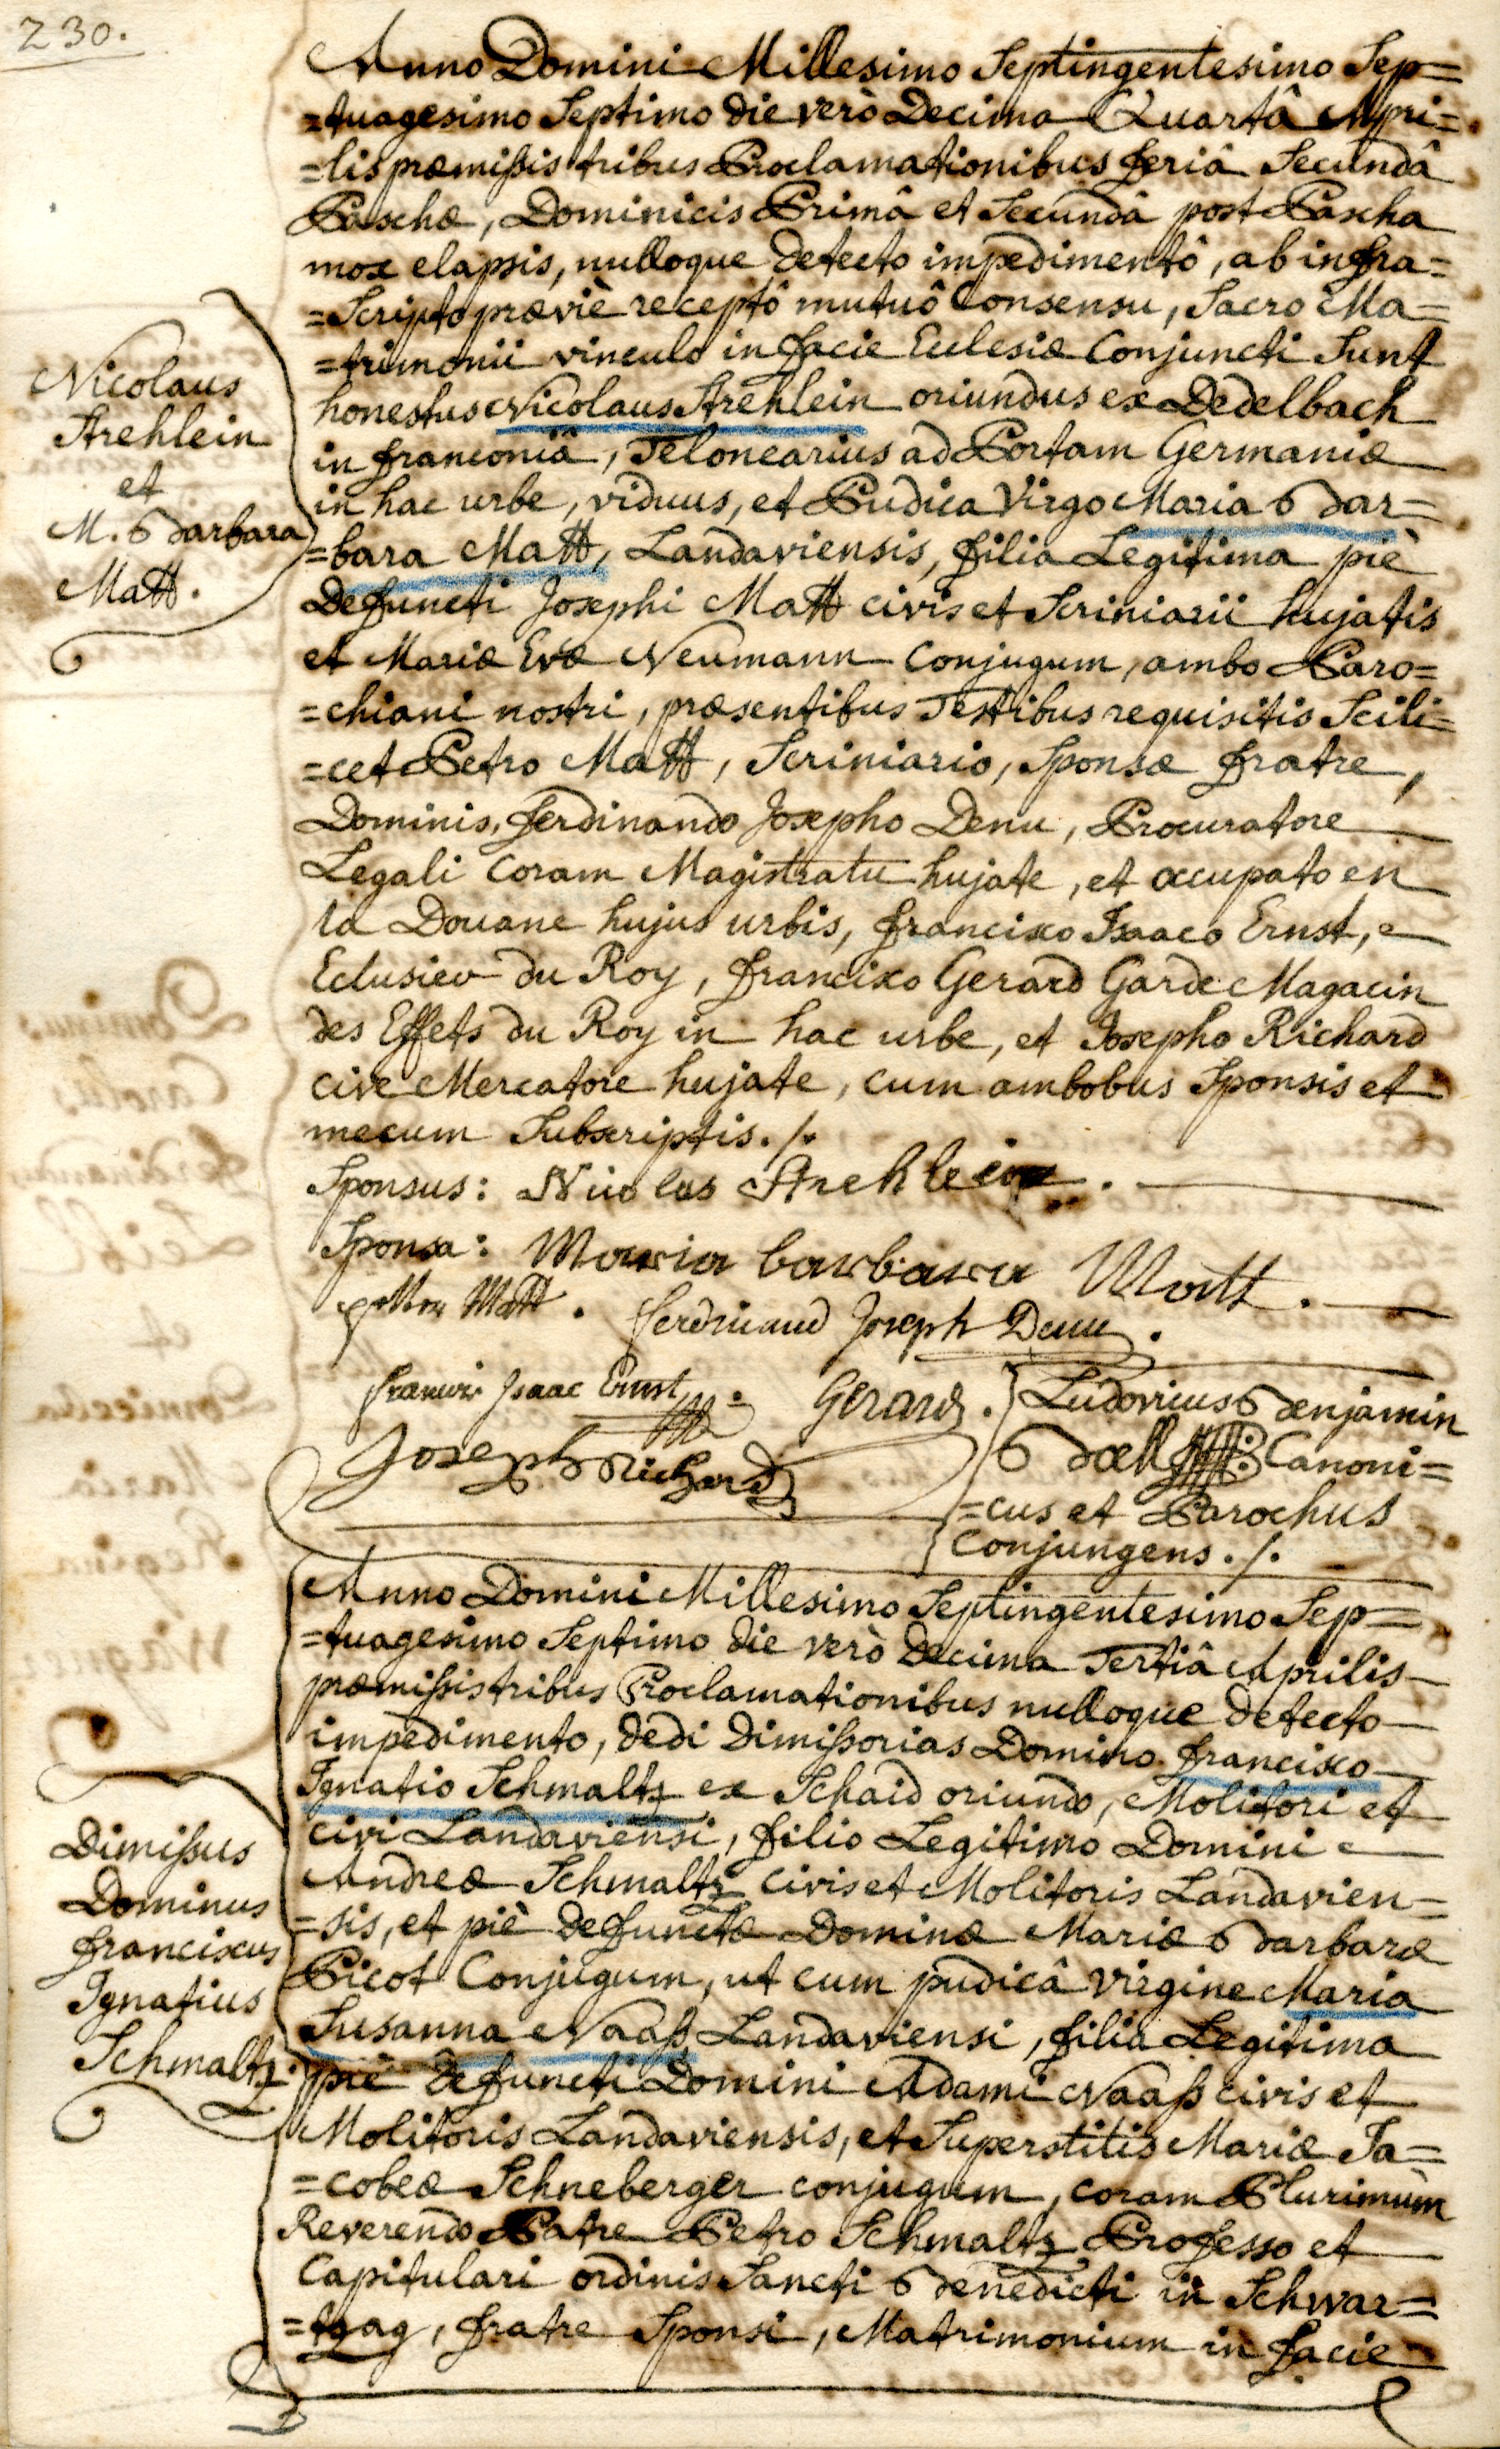 230.
Anno Domini Millesimo Septingentesimo Sep=
=tuagesimo Septimo die verò Decima Quartâ Apri=
=lis præmissis tribus Proclamationibus feriâ Secundâ
Paschæ, Dominicis Primâ et Secundâ post Pascha
mox elapsis, nulloque detecto impedimentô, ab infra=
=Scripto præviè receptô mutuô Consensu, Sacro Ma=
=trimonii vinculo in facie Ecclesiæ Conjuncti Sunt
honestus Nicolaus Strehlein oriundus ex Dedelbach
in franconiâ, Telonearius ad Portam Germaniæ
in hac urbe, viduus, et Pudica Virgo Maria Bar=
=bara Matt, Landaviensis, filia Legitima piè
Defuncti Josephi Matt civis et Scriniarii hujatis
et Mariæ Evæ Neumann Conjugum, ambo Paro=
=chiani nostri, præsentibus Testibus requisitis Scili=
=cet Petro Matt, Scriniario, Sponsæ fratre,
Dominis, ferdinando Josepho Denu, Procuratore
Legali Coram Magistratu hujate, et occupato en
la Douane hujus urbis, francisco Isaaco Ernst,
Eclusier du Roy, francisco Gerard Garde Magacin
des Effets du Roy in hac urbe, et Josepho Richard
cive Mercatore hujate, cum ambobus Sponsis et
mecum Subscriptis./.
Nicolaus
Strehlein
et
M. Barbara
Matt.
Sponsus: Nicolas Strehlein.
Sponsa: Maria barbara Matt.
Matt. ferdinand Joseph Denu.
francois Isaac Ernst. Gerard.
Joseph Richard
Ludovicus Benjamin
Bœll Canoni=
=cus et Parochus
Conjungens./.
Anno Domini Millesimo Septingentesimo Sep=
=tuagesimo Septimo die verò Decima Tertiâ Aprilis
præmissis tribus Proclamationibus nulloque detecto
impedimento, dedi Dimissorias Domino francisco
Ignatio Schmaltz ex Schaid oriundo, Molitori et
civi Landaviensi, filio Legitimo Domini
Andreæ Schmaltz civis et Molitoris Landavien=
=sis, et piè defunctæ Dominæ Mariæ Barbaræ
Picot Conjugum, ut cum pudicâ virgine Maria
Susanna Naaß Landaviensi, filia Legitima
piè defuncti Domini Adami Naaß civis et
Molitoris Landaviensis, et Superstitis Mariæ Ja=
=cobeæ Schneberger conjugum, coram Plurimùm
Reverendo Patre Petro Schmaltz Professo et
Capitulari ordinis Sancti Benedicti in Schwar=
=tzag, fratre Sponsi, Matrimonium in facie
Dimissus
Dominus
franciscus
Ignatius
Schmaltz.